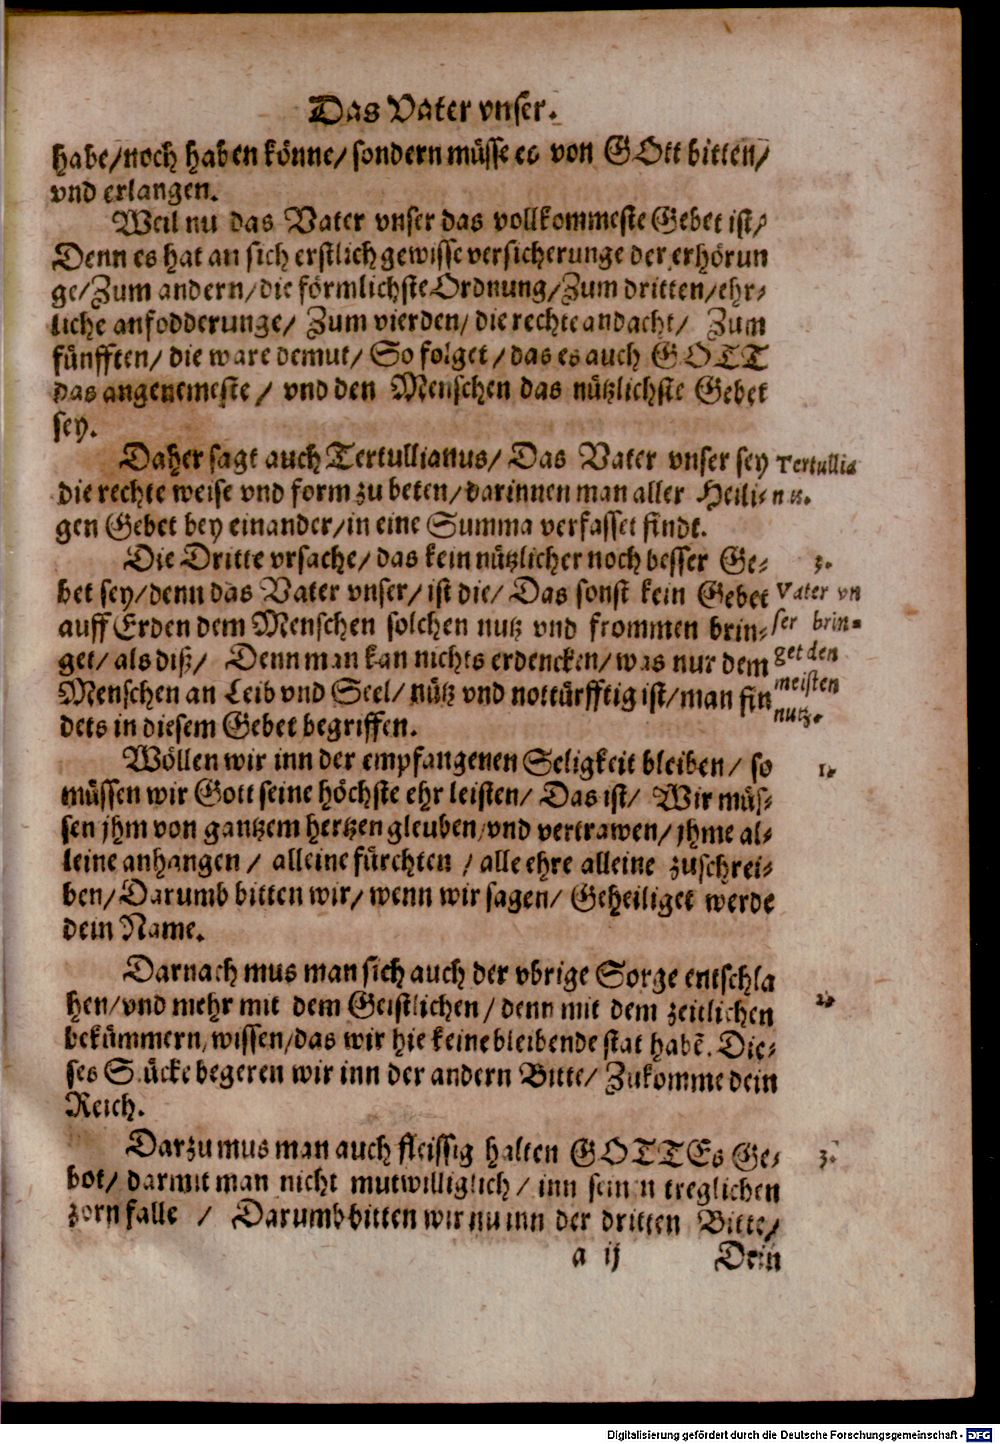 Das Vater vnser.
habe/noch haben könne/ sondern müsse es von GOtt bitten/
vnd erlangen.
Weil nu das Vater vnser das vollkommeste Gebet ist/
Denn es hat an sich erstlich gewisse versicherunge der erhörun
ge/Zum andern/die förmlichste Ordnung/Zum dritten/ehr-
liche anfodderunge/ Zum vierden/ die rechte andacht/ Zum
fünfften/ die ware demut/ So folget/ das es auch GOTT
das angenemeste/ vnd den Menschen das nützlichste Gebet
sey.
Daher sagt auch Tertullianus/ Das Vater vnser sey
Tertullia
die rechte weise vnd form zu beten/darinnen man aller Heili-
nu.
gen Gebet bey einander/in eine Summa verfasset findt.
Die Dritte vrsache/ das kein nützlicher noch besser Ge-
3.
bet sey/denn das Vater vnser/ ist die/ Das sonst kein Gebet
Vater vn
auff Erden dem Menschen solchen nutz vnd frommen brin-
ser brin-
get/ als diß/ Denn man kan nichts erdencken/ was nur dem
get den
Menschen an Leib vnd Seel/ nütz vnd nottürfftig ist/man fin
meisten
dets in diesem Gebet begriffen.
nutz.
Wöllen wir inn der empfangenen Seligkeit bleiben/ so
1.
müssen wir Gott seine höchste ehr leisten/ Das ist/ Wir müs-
sen jhm von gantzem hertzen gleuben/vnd vertrawen/ jhme al-
leine anhangen/ alleine fürchten/ alle ehre alleine zuschrei-
ben/ Darumb bitten wir/ wenn wir sagen/ Geheiliget werde
dein Name.
Darnach mus man sich auch der vbrige Sorge entschla
hen/vnd mehr mit dem Geistlichen/ denn mit dem zeitlichen
2.
bekümmern/ wissen/das wir hie keine bleibende stat habē. Die-
ses Stücke begeren wir inn der andern Bitte/ Zukomme dein
Reich.
Darzu mus man auch fleissig halten GOTTEs Ge-
3.
bot/ darmit man nicht mutwilliglich/ inn seinen treglichen
zorn falle/ Darumb bitten wir nu inn der dritten Bitte/
a ij
Dein
Digitalisierung gefördert durch die Deutsche Forschungsgemeinschaft - DFG